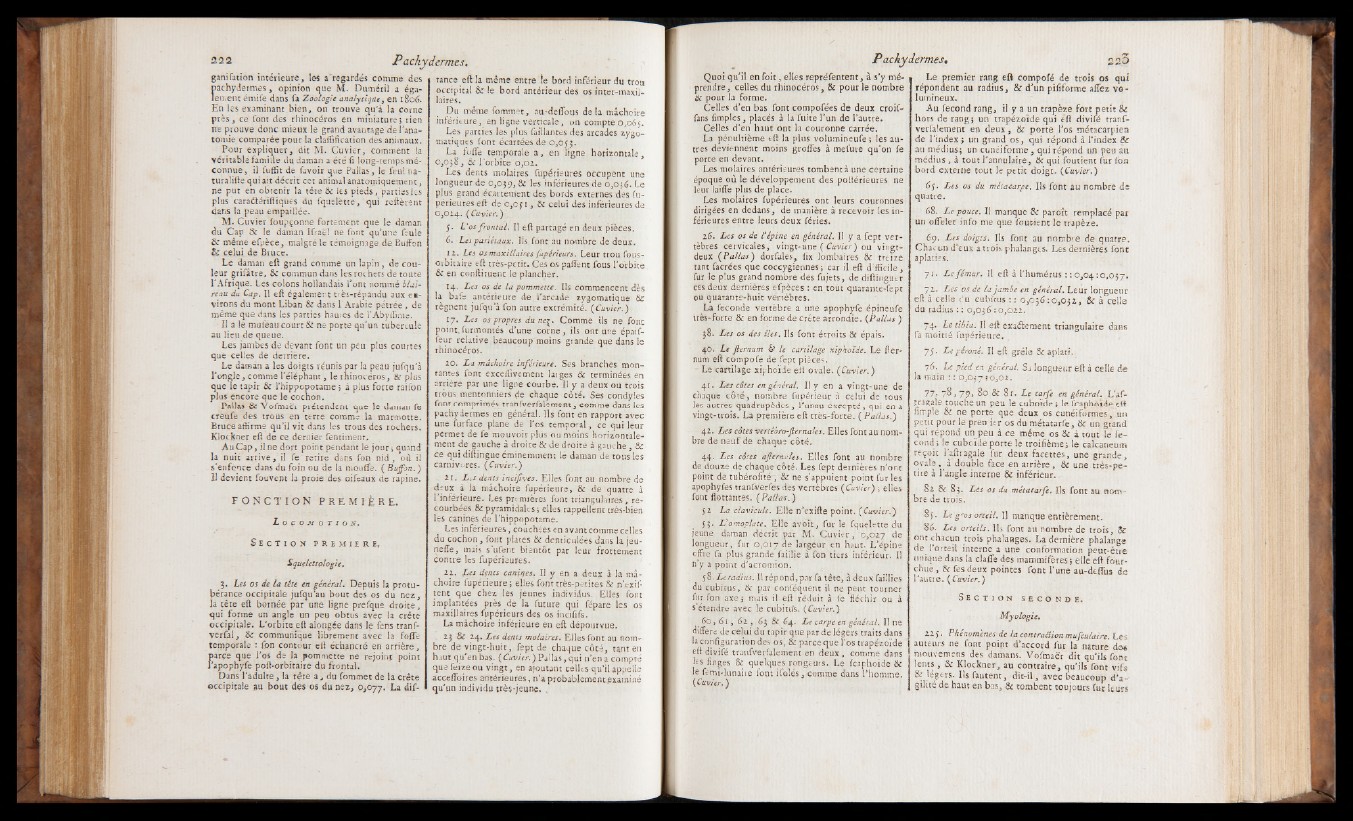 222 Pachydermes.
ganisation intérieure, les a regardés comme des
pachydermes, opinion que M. Duméril a éga-
lement émise dans sa Zoologie analytique, en 1806.
En les examinant bien, on trouve qu'à la corne
près, ce sont des rhinocéros en miniature; rien
ne prouve donc mieux le grand avantage de l'ana-
tomie comparée pour la classification des animaux.
Pour expliquer, dit M. Cuvier, comment la
véritable famille du daman a été si long-temps mé-
connue, il suffit de savoir que Pallas, le seul na-
turaliste qui ait décrit cet animal anatomiquement,
ne put en obtenir la tête & les pieds, parties les
plus caractéristiques du squelette, qui restèrent
dans la peau empaillée.
M. Cuvier soupçonne fortement que le daman
du Cap & le daman Israël ne font qu'une seule
& même espèce, malgré le témoignage de Buffon
& celui de Bruce.
Le daman est grand comme un lapin, de cou-
leur grisâtre, & commun dans les rochers de toute
l'Afrique. Les colons hollandais l'ont nommé blai-
reau du Cap. Il est également très-répandu aux en-
virons du mont Liban & dans l'Arabie pétrée, de
même que dans les parties hautes de l'Abyssinie.
Il a le museau court & ne porte qu'un tubercule
au lieu de queue.
Les jambes de devant sont un peu plus courtes
que celles de derrière.
Le daman a les doigts réunis par la peau jusqu'à
l'ongle, comme l'éléphant, le rhinocéros, & plus
que le tapir & l'hippopotame; à plus forte raison
plus encore que le cochon.
Pallas & Vosmaër prétendent que le daman se
creuse des trous en terre comme la marmotte.
Bruce affirme qu'il vit dans les trous des rochers.
Klockner est de ce dernier sentiment.
Au Cap, il ne dort point pendant le jour; quand
la nuit arrive, il se retire dans son nid, où il
s'enfonce dans du foin ou de la mousse. (Buffon.)
Il devient souvent la proie des oiseaux de rapine.
FONCTION PREMIÈRE.
LOCOMOTION.
SECTION PREMIERE.
Squelettologie.
3. Les os de la tête en général. Depuis la protu-
bérance occipitale jusqu'au bout des os du nez,
la tête est bornée par une ligne presque droite,
qui forme un angle un peu obtus avec la crête
occipitale. L'orbite est alongée dans le sens trans-
versal, & communique librement avec la fosse
temporale: son contour est échancré en arrière,
parce que l'os de la pommette ne rejoint point
l'apophyse post-orbitaire du frontal.
Dans l'adulte, la tête a, du sommet de la crête
occipitale au bout des os du nez, 0,077. La dif-
rance est la même entre le bord inférieur du trou
occipital & le bord antérieur des os inter-maxil-
laires.
Du même sommet, au-dessous de la mâchoire
inférieure, en ligne verticale, on compte 0,065.
Les parties les plus saillantes des arcades zygo-
matiques sont écartées de 0,053.
La fosse temporale a, en ligne horizontale,
0,038, & l'orbite 0,02.
Les dents molaires supérieures occupent une
longueur de 0,039, & les inférieures de 0,036. Le
plus grand écartement des bords externes des su-
périeures est de 0,031, & celui des inférieures de
0,024. (Cuvier.)
5. L'os frontal. Il est partagé en deux pièces.
6. Les pariétaux. Ils sont au nombre de deux.
12. Les os maxillaires supérieurs. Leur trou sous-
orbitaire est très-petit. Ces os passent sous l'orbite
& en constituent le plancher.
14. Les os de la pommette. Ils commencent dès
la base antérieure de l'arcade zygomatique &
règnent jusqu'à son autre extrémité. (Cuvier.)
17. Les os propres du nez. Comme ils ne sont
point surmontés d'une corne, ils ont une épais-
seur relative beaucoup moins grande que dans le
rhinocéros.
20. La mâchoire inférieure. Ses branches mon-
tantes sont excessivement larges & terminées en
arrière par une ligne courbe. Il y a deux ou trois
trous mentonniers de chaque côté. Ses condyles
sont comprimés transversalement, comme dans les
pachydermes en général. Ils sont en rapport avec
une surface plane de l'os temporal, ce qui leur
permet de se mouvoir plus ou moins horizontale-
ment de gauche à droite & de droite à gauche, &
ce qui distingue éminemment le daman de tous les
carnivores. (Cuvier.)
21. Les dents incisives. Elles sont au nombre de
deux à la mâchoire supérieure, & de quatre à
l'inférieure. Les premières sont triangulaires, re-
courbées & pyramidales; elles rappellent très-bien
les canines de l'hippopotame.
Les inférieures, couchées en avant comme celles
du cochon, sont plates & denticulées dans la jeu-
nesse, mais s'usent bientôt par leur frottement
contre les supérieures.
22. Les dents canines. Il y en a deux à la mâ-
choire supérieure; elles sont très-petites & n'exis-
tent que chez les jeunes individus. Elles sont
implantées près de la suture qui sépare les os
maxillaires supérieurs des os incisifs.
La mâchoire inférieure en est dépourvue.
23 & 24. Les dents molaires. Elles sont au nom-
bre de vingt-huit, sept de chaque côté, tant en
haut qu'en bas. (Cuvier.) Pallas, qui n'en a compté
que seize ou vingt, en ajoutant celles qu'il appelle
accessoires antérieures, n'a probablement examiné
qu'un individu très-jeune.
Pachydermes. 223
Quoi qu'il en soit, elles représentent, à s'y mé-
prendre, celles du rhinocéros, & pour le nombre
& pour la forme.
Celles d'en bas sont composées de deux crois-
sans simples, placés à la suite l'un de l'autre.
Celles d'en haut ont la couronne carrée.
La pénultième est la plus volumineuse; les au-
tres deviennent moins grosses à mesure qu'on se
porte en devant.
Les molaires antérieures tombent à une certaine
époque où le développement des postérieures ne
leur laisse plus de place.
Les molaires supérieures ont leurs couronnes
dirigées en dedans, de manière à recevoir les in-
férieures entre leurs deux séries.
26. Les os de l'épine en général. Il y a sept ver-
tèbres cervicales, vingt-une (Cuvier) ou vingt-
deux (Pallas) dorsales, six lombaires & treize
tant sacrées que coccygiennes; car il est difficile,
sur le plus grand nombre des sujets, de distinguer
ces deux dernières espèces: en tout quarante-sept
ou quarante-huit vertèbres.
La seconde vertèbre a une apophyse épineuse
très-forte & en forme de crête arrondie. (Pallas.)
38. Les os des îles. Ils sont étroits & épais.
40. Le sternum & le cartilage xiphoïde. Le ster-
num est composé de sept pièces.
Le cartilage xiphoïde est ovale. (Cuvier.)
41. Les côtes en général. Il y en a vingt-une de
chaque côté, nombre supérieur à celui de tous
les autres quadrupèdes, l'unau excepté, qui en a
vingt-trois. La première est très-forte. (Pallas.)
42. Les côtes vertébro-sternales. Elles sont au nom-
bre de neuf de chaque côté.
44. Les côtes asternales. Elles sont au nombre
de douze de chaque côté. Les sept dernières n'ont
point de tubérosité, & ne s'appuient point sur les
apophyses transverses des vertèbres (Cuvier); elles
sont flottantes. (Pallas.)
52 La clavicule. Elle n'existe point. (Cuvier.)
53. L'omoplate. Elle avoit, sur le squelette du
jeune daman décrit par M. Cuvier, 0,027 de
longueur, sur 0,017 de largeur en haut. L'épine
offre sa plus grande saillie à son tiers inférieur. Il
n'y a point d'acromion.
58. Le radius. Il répond, par sa tête, à deux saillies
du cubitus, & par conséquent il ne peut tourner
sur son axe; mais il est réduit à se fléchir ou à
s'étendre avec le cubitus. (Cuvier.)
60, 61, 62, 63 & 64. Le carpe en général. Il ne
diffère de celui du tapir que par de légers traits dans
la configuration des os, & parce que l'os trapézoïde
est divisé transversalement en deux, comme dans
les singes & quelques rongeurs. Le scaphoïde &
le semi-lunaire sont isolés, comme dans l'homme.
(Cuvier.)
Le premier rang est composé de trois os qui
répondent au radius, & d'un pisiforme assez vo-
lumineux.
Au second rang, il y a un trapèze fort petit &
hors de rang; un trapézoïde qui est divisé trans-
versalement en deux, & porte l'os métacarpien
de l'index; un grand os, qui répond à l'index &
au médius; un cunéiforme, qui répond un peu au
médius, à tout l'annulaire, & qui soutient sur son
bord externe tout le petit doigt. (Cuvier.)
65. Les os du métacarpe. Ils sont au nombre de
quatre.
68. Le pouce. Il manque & paroît remplacé par
un osselet informe que soutient le trapèze.
69. Les doigts. Ils sont au nombre de quatre.
Chacun d'eux a trois phalanges. Les dernières sont
aplaties.
71. Le fémur. Il est à l'humérus :: 0,04 : 0,037.
72. Les os de la jambe en général. Leur longueur
est à celle du cubitus :: 0,036 : 0,032, & à celle
du radius :: 0,036 : 0,022.
74. Le tibia. Il est exactement triangulaire dans
sa moitié supérieure.
75. Le péroné. Il est grêle & aplati.
76. Le pied en général. Sa longueur est à celle de
la main :: 0,037 : 0,02.
77, 78, 79, 80 & 81. Le tarse en général. L'as-
tragale touche un peu le cuboïde; le scaphoïde est
simple & ne porte que deux os cunéiformes, un
petit pour le premier os du métatarse, & un grand
qui répond un peu à ce même os & à tout le se-
cond; le cuboïde porte le troisième; le calcaneum
reçoit l'astragale sur deux facettes, une grande,
ovale, à double face en arrière, & une très-pe-
tite à l'angle interne & inférieur.
82 & 83. Les os du métatarse. Ils sont au nom-
bre de trois.
85. Le gros orteil. Il manque entièrement.
86. Les orteils. Ils sont au nombre de trois, &
ont chacun trois phalanges. La dernière phalange
de l'orteil interne a une conformation peut-être
unique dans la classe des mammifères; elle est four-
chue, & ses deux pointes sont l'une au-dessus de
l'autre. (Cuvier.)
SECTION SECONDE.
Myologie.
225. Phénomènes de la contraction musculaire. Les
auteurs ne sont point d'accord sur la nature des
mouvemens des damans. Vosmaër dit qu'ils sont
lents, & Klockner, au contraire, qu'ils sont vifs
& légers. Ils sautent, dit-il, avec beaucoup d'a-
gilité de haut en bas, & tombent toujours sur leurs